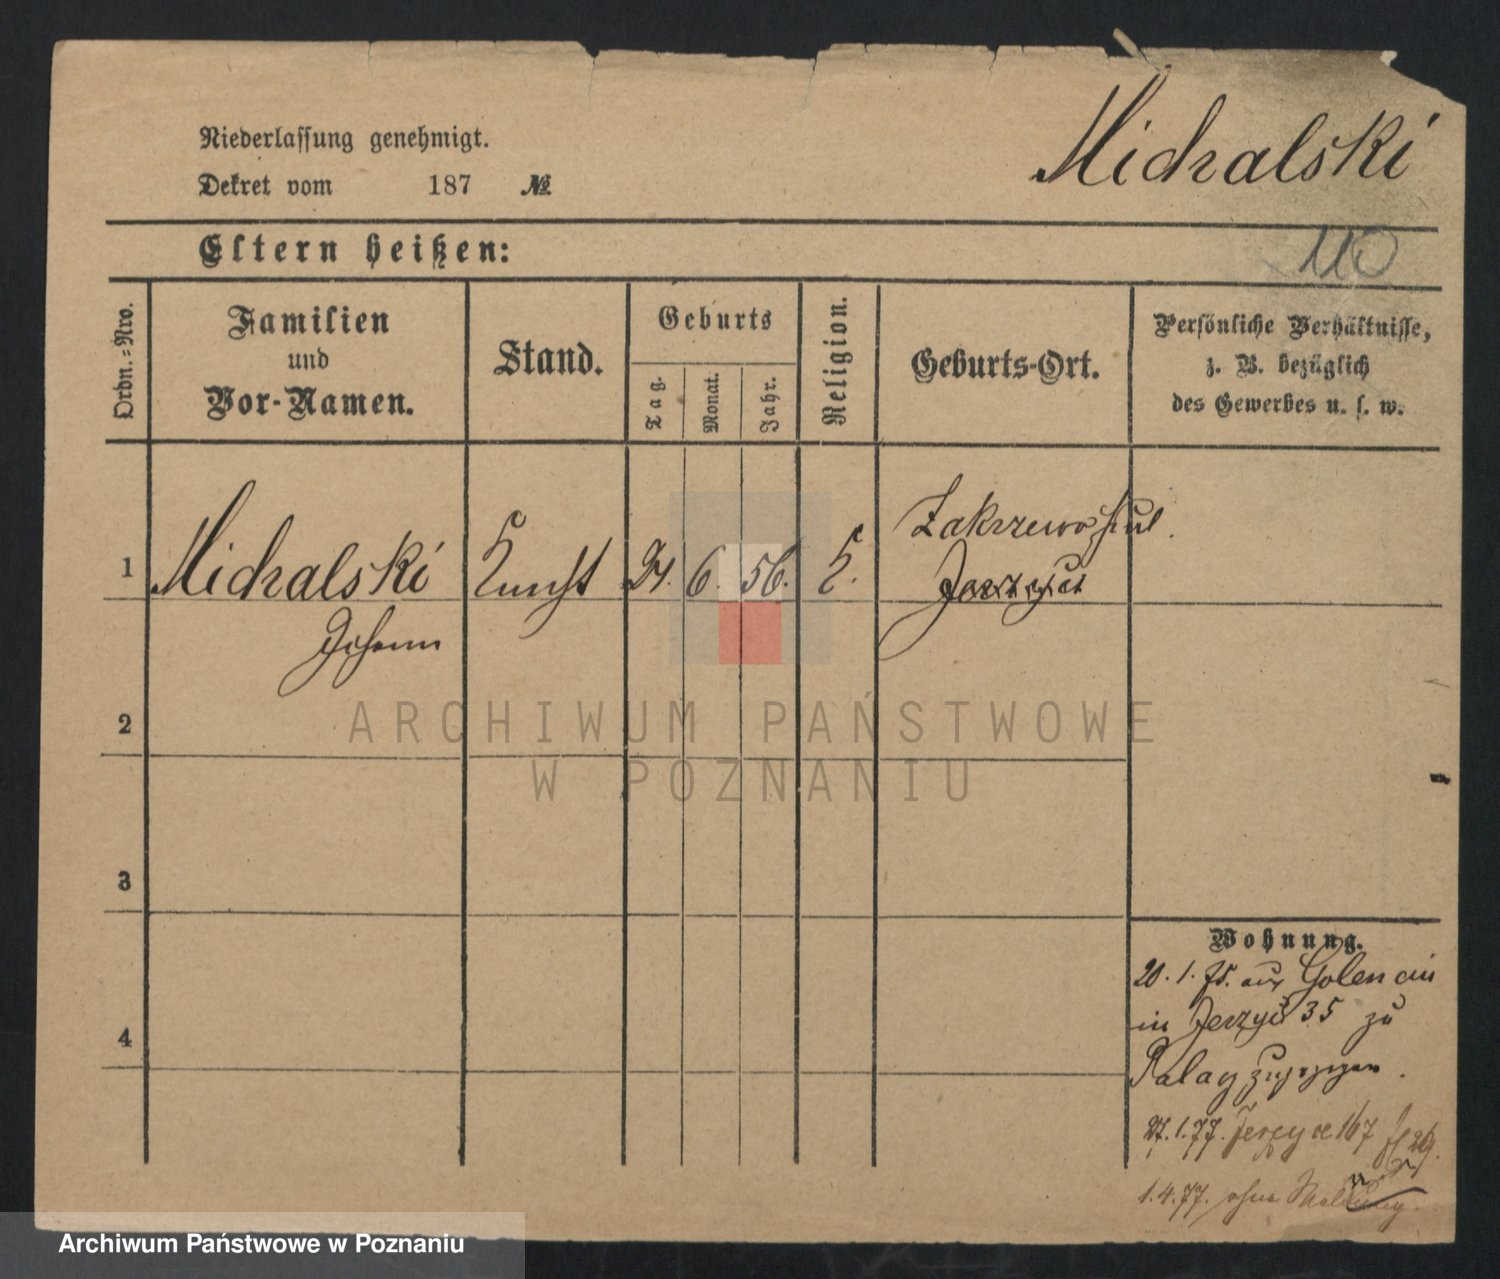 Niederlassung genehmigt.
Dekret vom 187 №
Michalski
Eltern heißen:
Ordn.=Nro.
Familien
und
Vor-Namen.
Stand.
Geburts
Tag.
Monat.
Jahr.
Religion.
Geburts-Ort.
Persönliche Verhältnisse,
z. B. bezüglich
des Gewerbes u. s. w.
1
Michalski
Johann
Knecht
24. 6. 56.
K.
Zakrzewo
2
3
4
Wohnung.
20. 1. 75. aus Golencin
in Jerzyce 35 zu
Palacz zugezogen.
27. 1. 77. Jerzyce 167
1. 4. 77. ohne Meldung.
ARCHIWUM PAŃSTWOWE
W POZNANIU
Archiwum Państwowe w Poznaniu